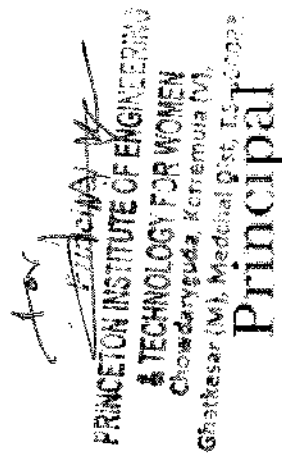 for
PRINCETON INSTITUTE OF ENGINEERING
& TECHNOLOGY FOR WOMEN
Chowdaryguda, Korremula (V),
Ghatkesar (M), Medchal Dist, T.S-
Principal